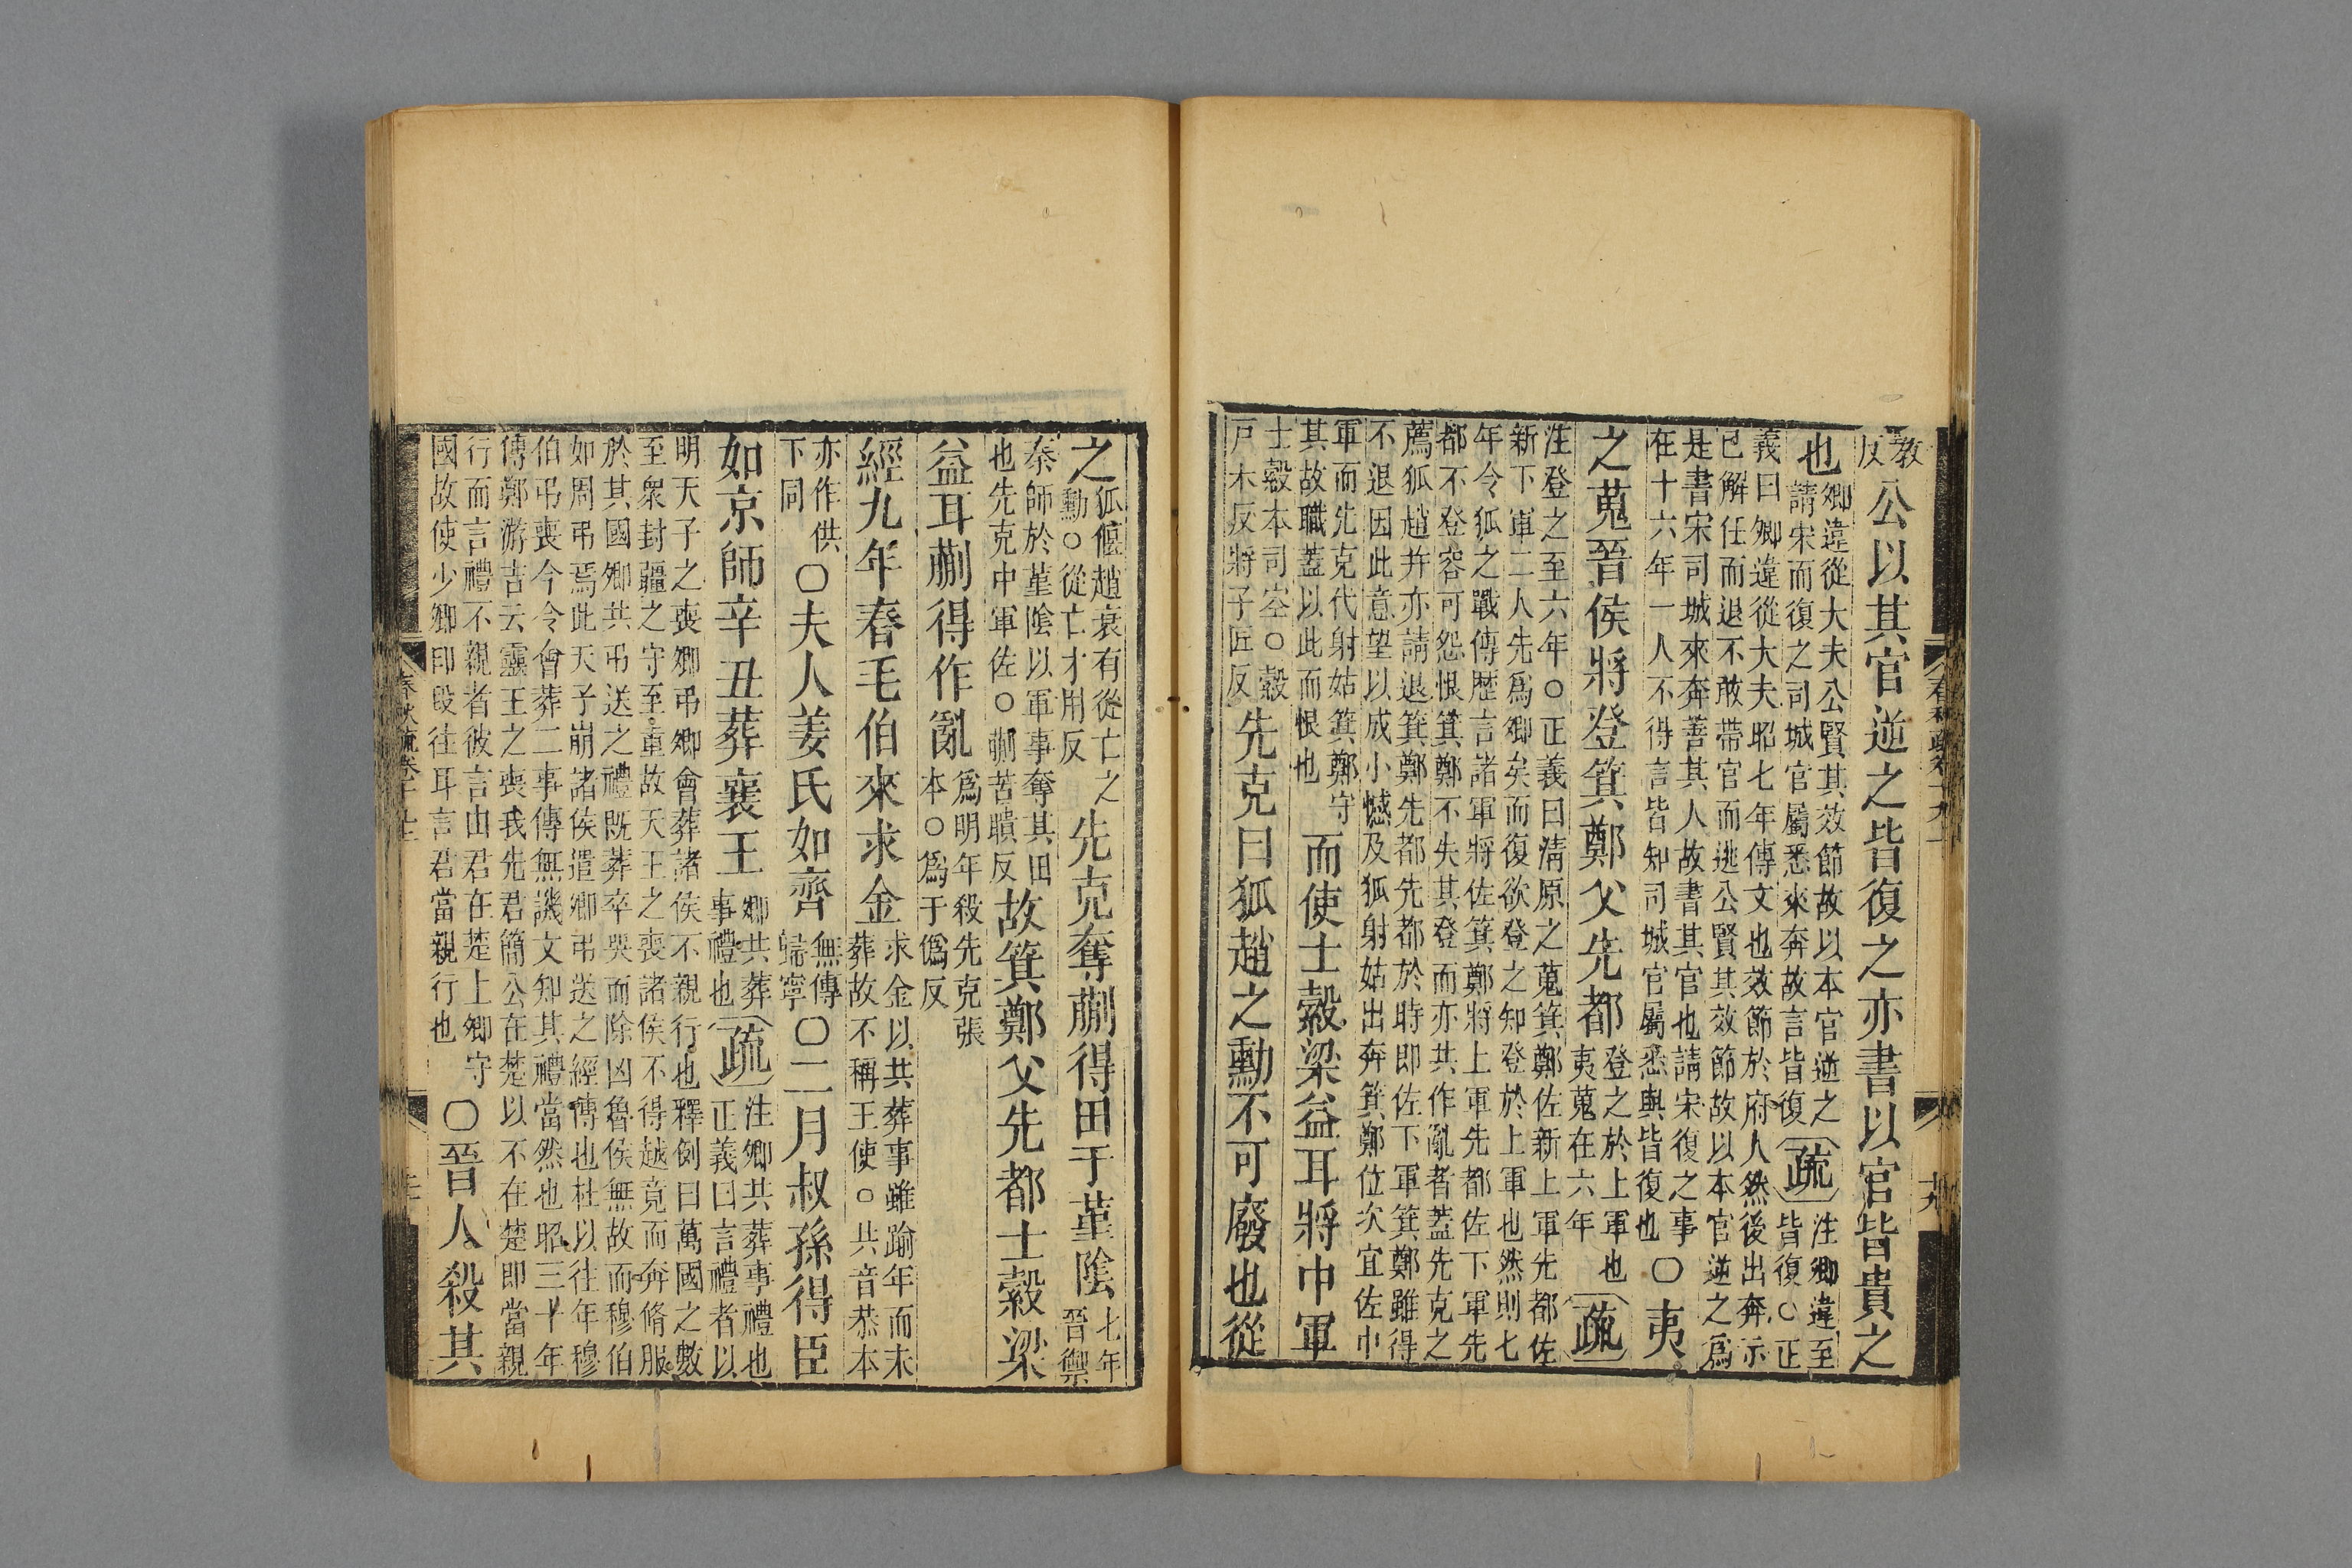 教反公以其官逆之皆復之亦書以官皆貴之
也卿違從大夫公賢其效節故以本官逆之
請宋而復之司城官屬悉來奔故言皆復疏注卿違至
皆復○正
義曰卿違從大夫昭七年傳文也效節於府人然後出奔示
已解任而退不敢帶官而逃公賢其效節故以本官逆之爲
是書宋司城來奔善其人故書其官也請宋復之事
在十六年一人不得言皆知司城官屬悉與皆復也○夷
之蒐晉侯將登箕鄭父先都登之於上軍也
夷蒐在六年疏
注登之至六年○正義曰清原之蒐箕鄭佐新上軍先都佐
新下軍二人先爲卿矣而復欲登之知登於上軍也然則七
年令狐之戰傳歷言諸軍將佐箕鄭將上軍先都佐下軍先
都不登容可怨恨箕鄭不失其登而亦共作亂者蓋先克之
薦狐趙并亦請退箕鄭先都先都於時即佐下軍箕鄭雖得
不退因此意望以成小憾及狐射姑出奔箕鄭位次宜佐中
軍而先克代射姑箕鄭守
其故職蓋以此而恨也而使士縠梁益耳將中軍
士縠本司空○縠
戸木反將子匠反先克曰狐趙之勳不可廢也從
之狐偃趙衰有從亡之
勳○從亡才用反先克奪蒯得田于堇陰七年
晉禦
秦師於堇陰以軍事奪其田
也先克中軍佐○蒯苦聵反故箕鄭父先都士縠梁
益耳蒯得作亂爲明年殺先克張
本○爲于僞反
經九年春毛伯來求金求金以共葬事雖踰年而未
葬故不稱王使○共音恭本
亦作供
下同○夫人姜氏如齊無傳
歸寧○二月叔孫得臣
如京師辛丑葬襄王卿共葬
事禮也疏注卿共葬事禮也
正義曰言禮者以
明天子之喪卿弔卿會葬諸侯不親行也釋例曰萬國之數
至衆封疆之守至重故天王之喪諸侯不得越竟而奔脩服
於其國卿共弔送之禮既葬卒哭而除凶魯侯無故而穆伯
如周弔焉此天子崩諸侯遣卿弔送之經傳也杜以往年穆
伯弔喪今令會葬二事傳無譏文知其禮當然也昭三十年
傳鄭游吉云靈王之喪我先君簡公在楚以不在楚即當親
行而言禮不親者彼言由君在楚上卿守
國故使少卿印段往耳言君當親行也○晉人殺其
春秋疏卷十九上
十九